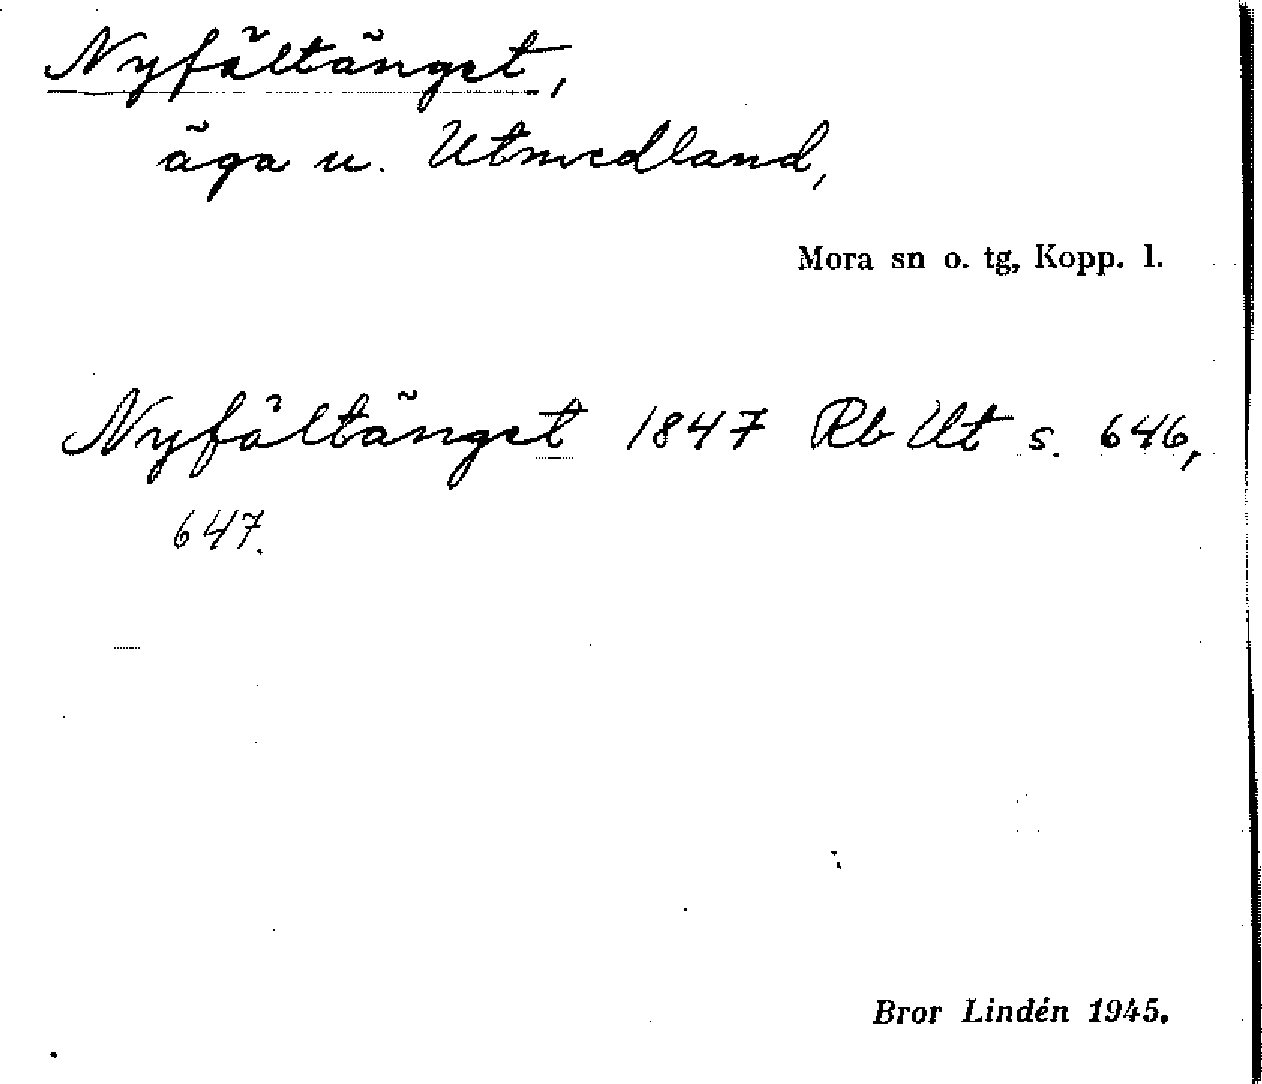 Nyfältänget,
äga u. Utmedland,
Mora sn o. tg, Kopp. l.
Nyfältänget 1847 Rb Ut s. 646,
647.
Bror Lindén 1945.